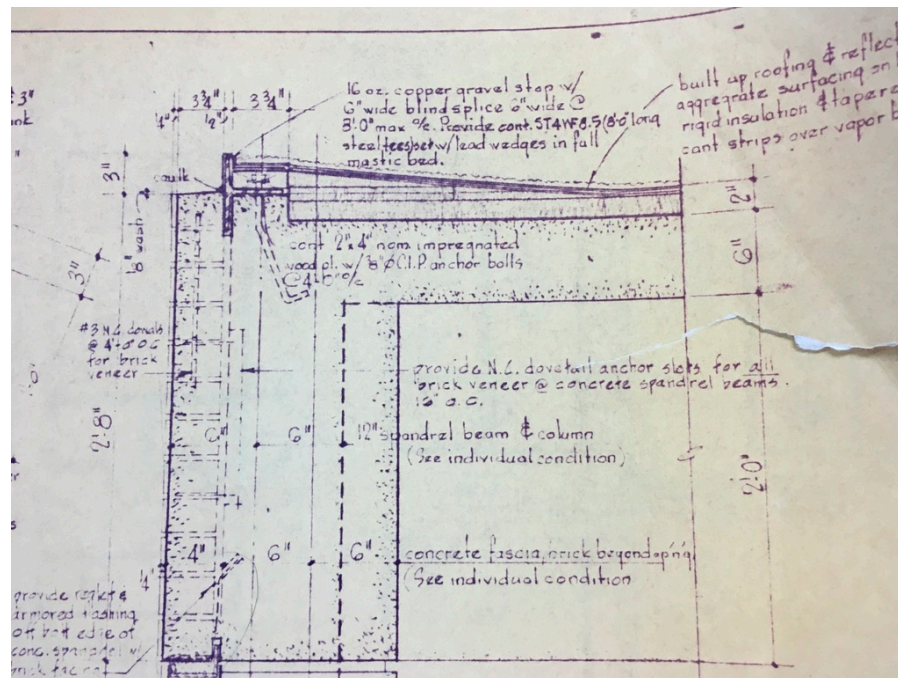 3"
3 3/4" 3 3/4"
1/4" 1/2"
16 oz. copper gravel stop w/
6" wide blind splice 6" wide @
8'0" max o/c. Provide cont. ST4WF8.5 (8'0" long
steel tees) set w/ lead wedges in full
mastic bed.
built up roofing & reflect
aggregrate surfacing on
rigid insulation & tapere
cant strips over vapor b
3"
caulk
2"
1/8" wash
cont 2"x4" nom. impregnated
wood pl. w/ 3/8" ø C.I.P. anchor bolts
@ 4'-0" o/c
6"
3"
#3 N.C. dowels
@ 4'-0" O.C.
for brick
veneer
provide N.C. dovetail anchor slots for all
brick veneer @ concrete spandrel beams.
16" o.c.
2'8"
6" 6" 12" spandrel beam & column
(See individual condition)
2'0"
4" 6" 6" concrete fascia, brick beyond op'n'g
(See individual condition
1/4"
provide reglet &
armored flashing
bott edge of
conc. spandrel w/
brick facing